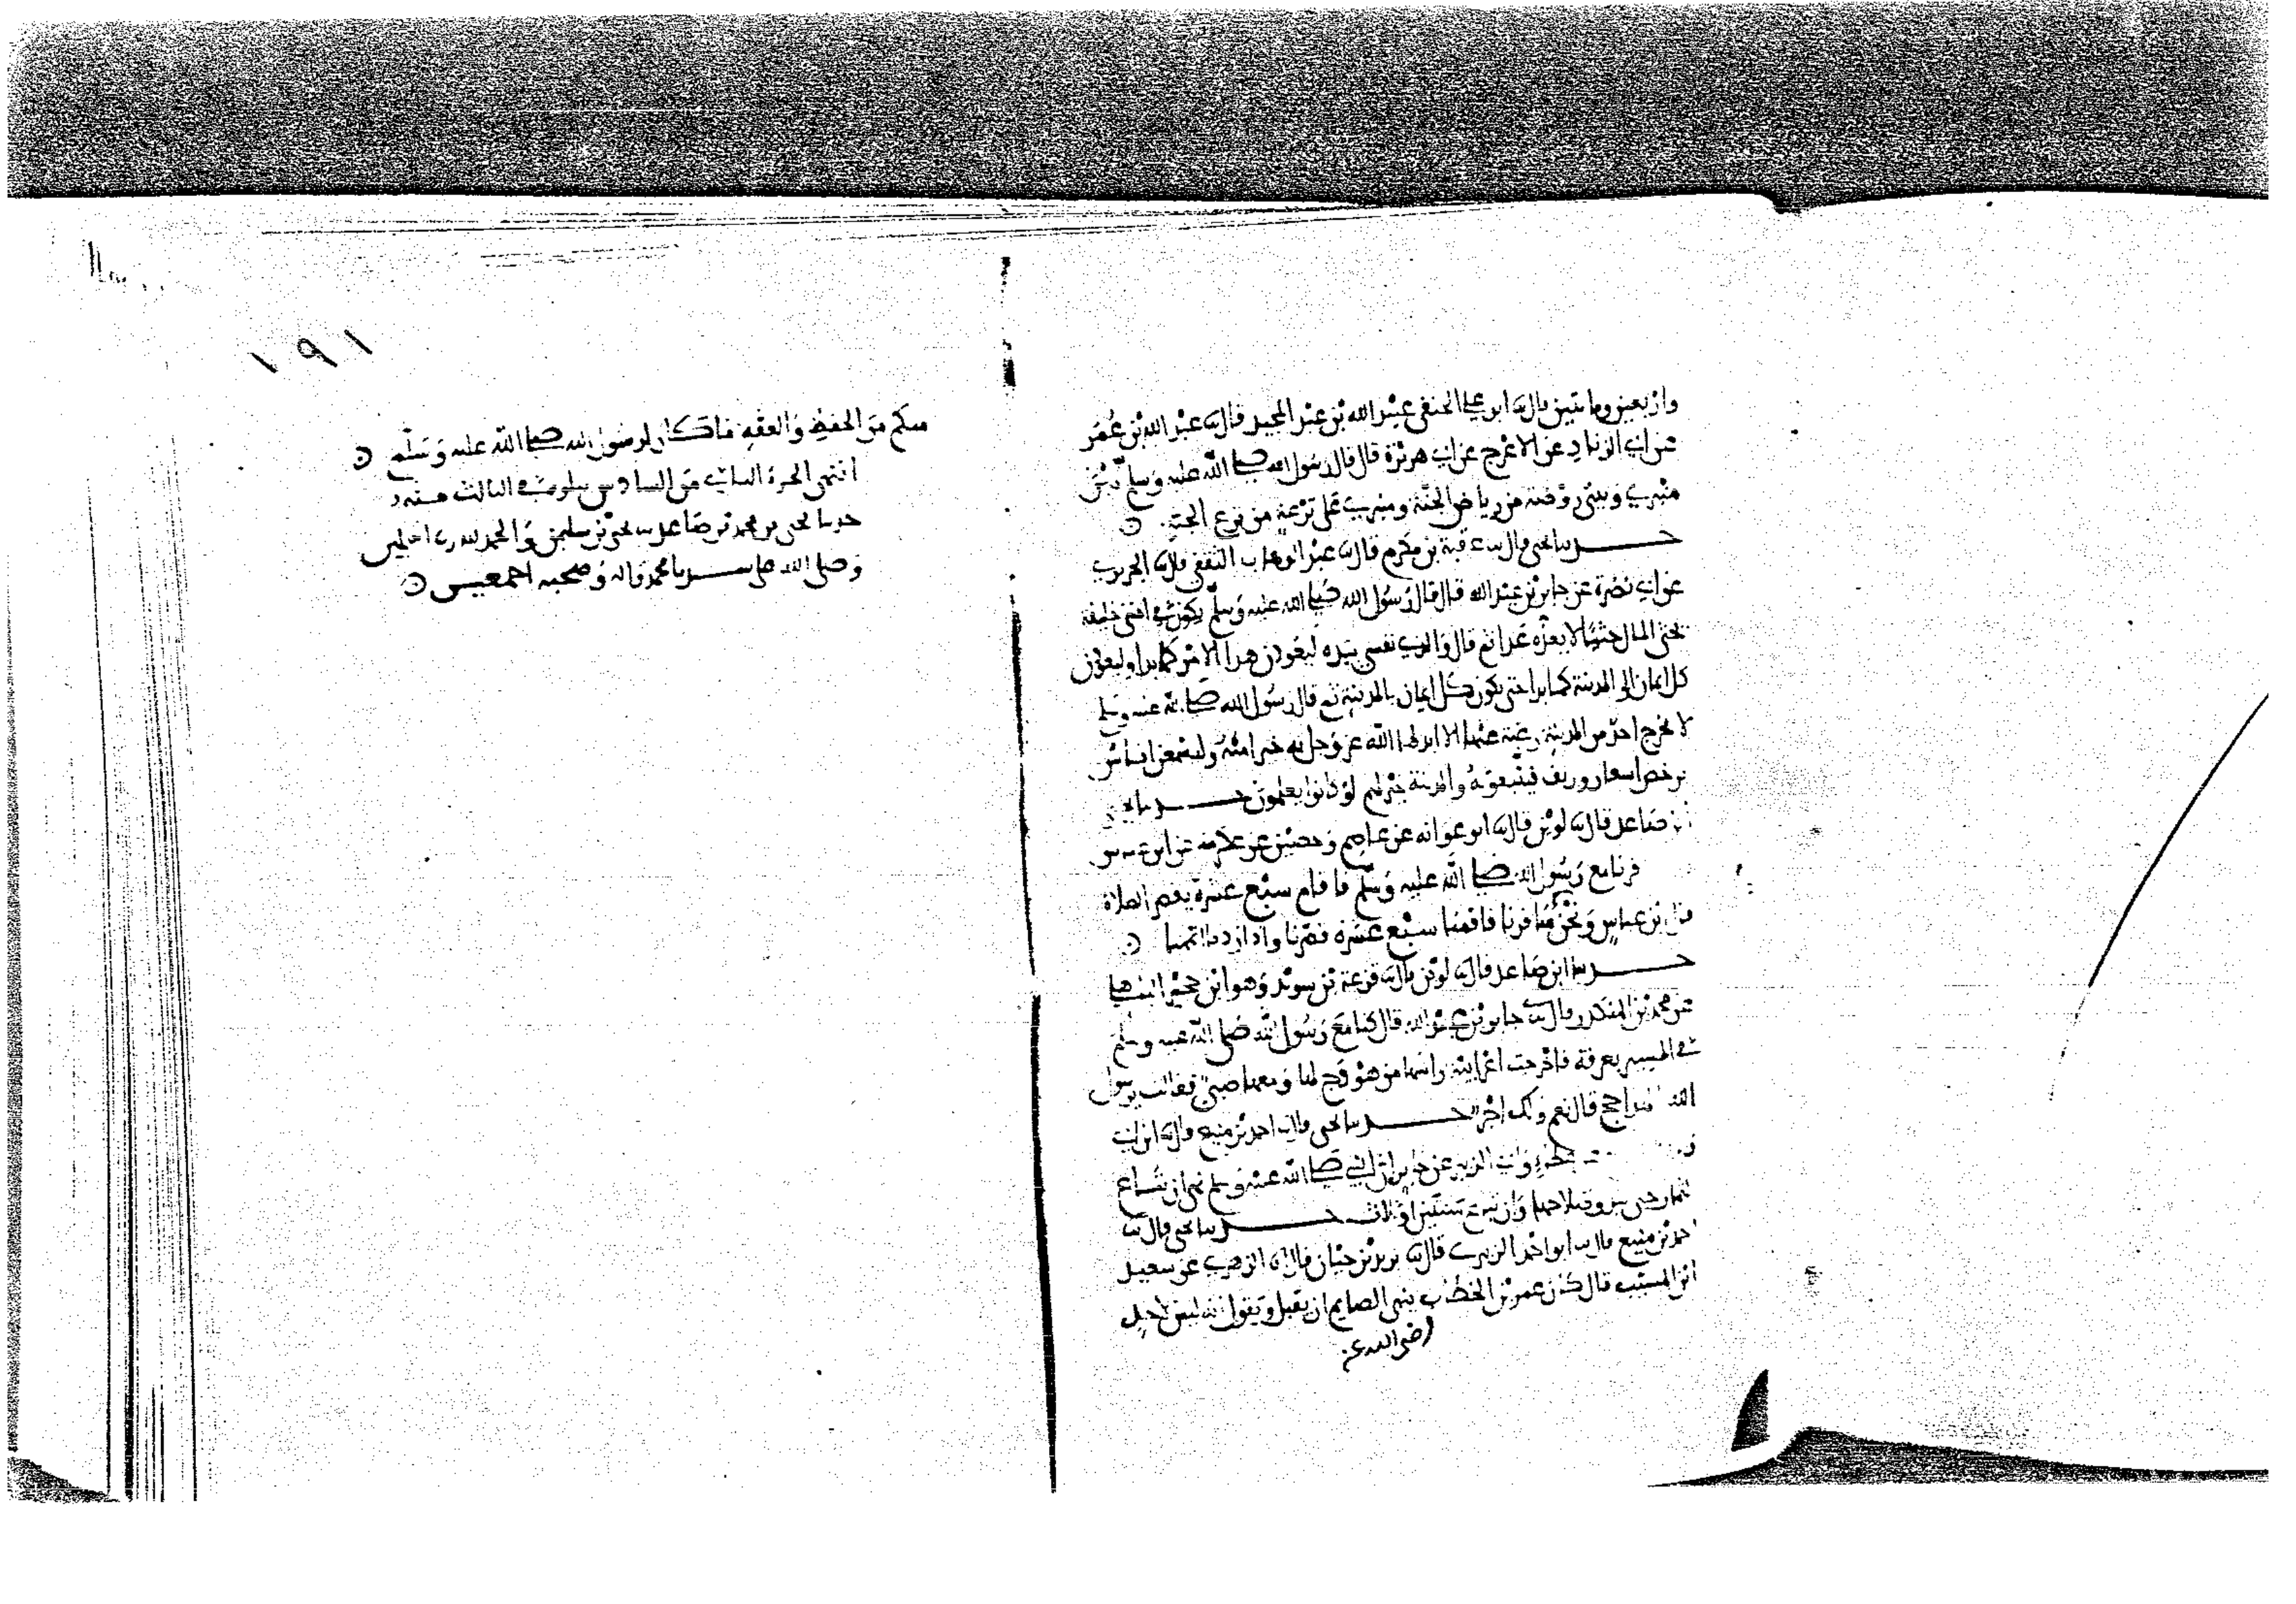 وأربعين ومائتين قال نا ابو علي الحنفي عبيد الله بن عبد المجيد قال نا عبد الله بن عمر
عن ابي الزناد عن الاعرج عن ابي هريرة قال قال رسول الله صلى الله عليه وسلم بين
منبري وبيتي روضة من رياض الجنة ومنبري على ترعة من ترع الجنة
حدثنا يحيى قال نا عقبة بن مكرم قال نا عبد الوهاب الثقفي قال نا الجريري
عن ابي نضرة عن جابر بن عبد الله قال قال رسول الله صلى الله عليه وسلم يكون في امتي خليفة
يحثي المال حثيا لا يعده عدا ثم قال والذي نفسي بيده ليعودن هذا الامر كما بدا وليعودن
كل ايمان الى المدينة كما بدا حتى يكون كل ايمان بالمدينة ثم قال رسول الله صلى الله عليه وسلم
لا يخرج احد من المدينة رغبة عنها الا ابدلها الله عز وجل به خيرا منه وليسمعن ناس
برخص اسعار وريف فيتبعونه والمدينة خير لهم لو كانوا يعلمون حدثنا يحيى
بن صاعد قال نا لوين قال نا ابو عوانة عن عاصم وحصين عن عكرمة عن ابن عباس
قال سافرنا مع رسول الله صلى الله عليه وسلم فاقام سبع عشرة يقصر الصلاة
قال بن عباس ونحن اذا سافرنا فاقمنا سبع عشرة قصرنا واذا زدنا اتممنا
حدثنا ابن صاعد قال نا لوين قال نا قزعة بن سويد وهو ابن حجير الباهلي
عن محمد بن المنكدر قال نا جابر بن عبد الله قال كنا مع رسول الله صلى الله عليه وسلم
في المسير بعرفة فاخرجت اعرابية راسها من هودج لها ومعها صبي فقالت يرسول
الله لهذا حج قال نعم ولك اجر حدثنا يحيى قال نا احمد بن منيع قال نا ابن ابي
عطاء وابي الزبير عن جابر ان النبي صلى الله عليه وسلم نهى ان تباع
الثمار حتى يبدو صلاحها وان تباع سنتين او ثلاث حدثنا يحيى قال نا
احمد بن منيع قال نا ابو احمد الزبيري قال نا يزيد بن حيان قال نا الزهري عن سعيد
ابن المسيب قال كان عمر بن الخطاب ينهى الصايم ان يقبل ويقول انه ليس لاحد
رضي الله عنه
١٩١
منكم من الحفظ والعفة ما كان لرسول الله صلى الله عليه وسلم
انتهى الجزء الثاني من السادس يتلوه في الثالث منه
حدثنا يحيى بن محمد بن صاعد نا يحيى بن سليمن والحمد لله رب العلمين
وصلى الله على سيدنا محمد واله وصحبه اجمعين